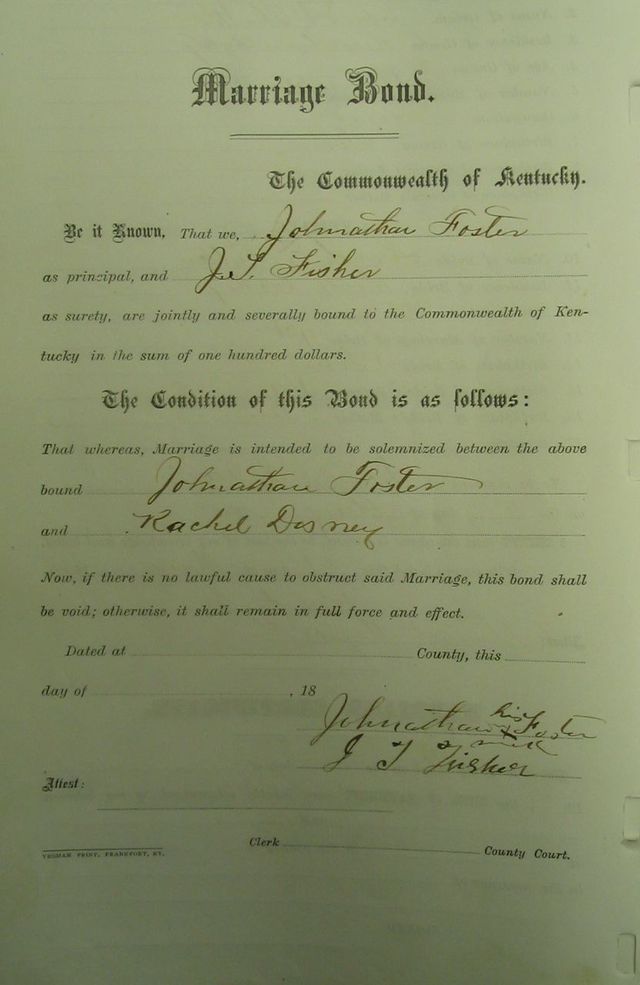 Marriage Bond.
The Commonwealth of Kentucky.
Be it Known, That we, Johnathan Foster
as principal, and J. T. Fisher
as surety, are jointly and severally bound to the Commonwealth of Ken-
tucky in the sum of one hundred dollars.
The Condition of this Bond is as follows:
That whereas, Marriage is intended to be solemnized between the above
bound Johnathan Foster
and Rachel Disney
Now, if there is no lawful cause to obstruct said Marriage, this bond shall
be void; otherwise, it shall remain in full force and effect.
Dated at County, this
day of , 18
his
Johnathan x Foster
mark
J T Fisher
Attest:
Clerk County Court.
YEOMAN PRINT, FRANKFORT, KY.